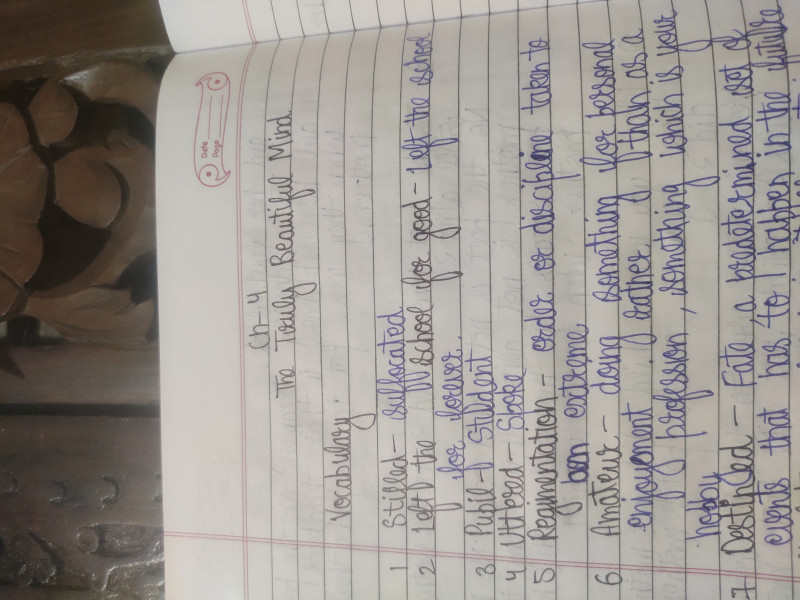 Date
Page
Ch-4
The Truly Beautiful Mind.
Vocabulary.
1 Stifled - suffocated
2 Left the school for good - Left the school
for forever.
3 Pupil - Student
4 Uttered - Spoke
5 Regimentation - order or discipline taken to
an extreme
6 Amateur - doing something for personal
enjoyment rather than as a
profession, something which is your
hobby
7 Destined - Fate, a predetermined set of
events that has to happen in the future